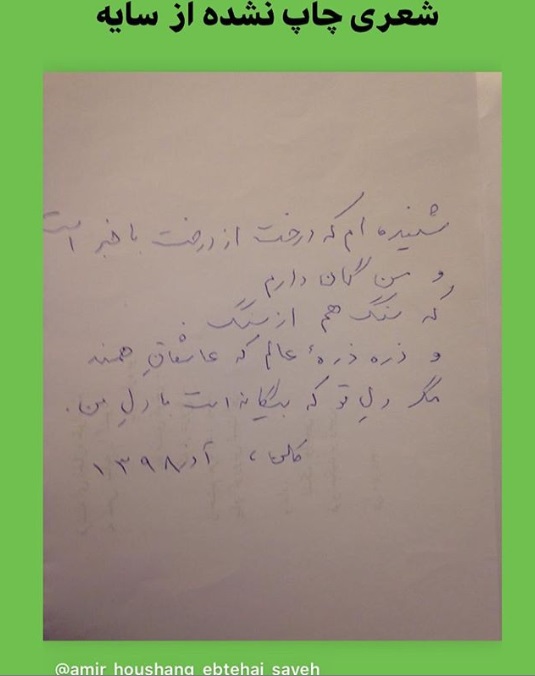 شعری چاپ نشده از سایه
شنیده ام که درخت از درخت با خبر است
و من گمان دارم
که سنگ هم از سنگ .
و ذره ذرهٔ عالم که عاشقانِ همند
مگر دلِ تو که بیگانه است با دلِ من .
کلن ، آذر ۱۳۹۸
@amir_houshang_ebtehaj_sayeh